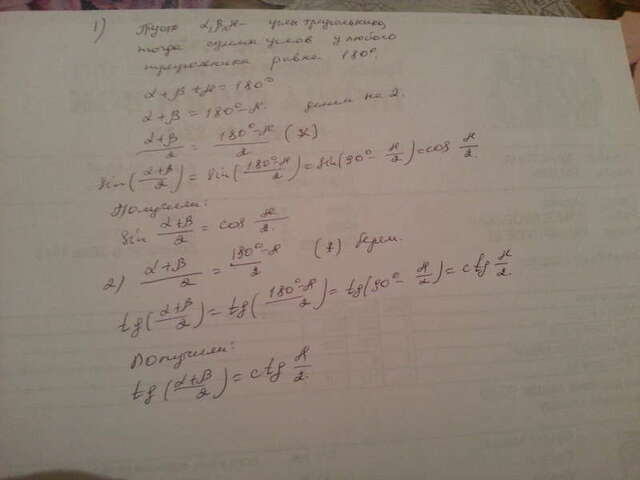 1) Пусть α, β, γ - углы треугольника,
тогда сумма углов у любого
треугольника равна 180°.
α+β+γ=180°
α+β=180°-γ делим на 2.
(α+β)/2 = (180°-γ)/2 (*)
sin((α+β)/2) = sin((180°-γ)/2) = sin(90°- γ/2) = cos γ/2
Получили:
sin (α+β)/2 = cos γ/2.
2) (α+β)/2 = (180°-γ)/2 (*) берем.
tg((α+β)/2) = tg((180°-γ)/2) = tg(90°- γ/2) = ctg γ/2.
Получили:
tg((α+β)/2) = ctg γ/2.